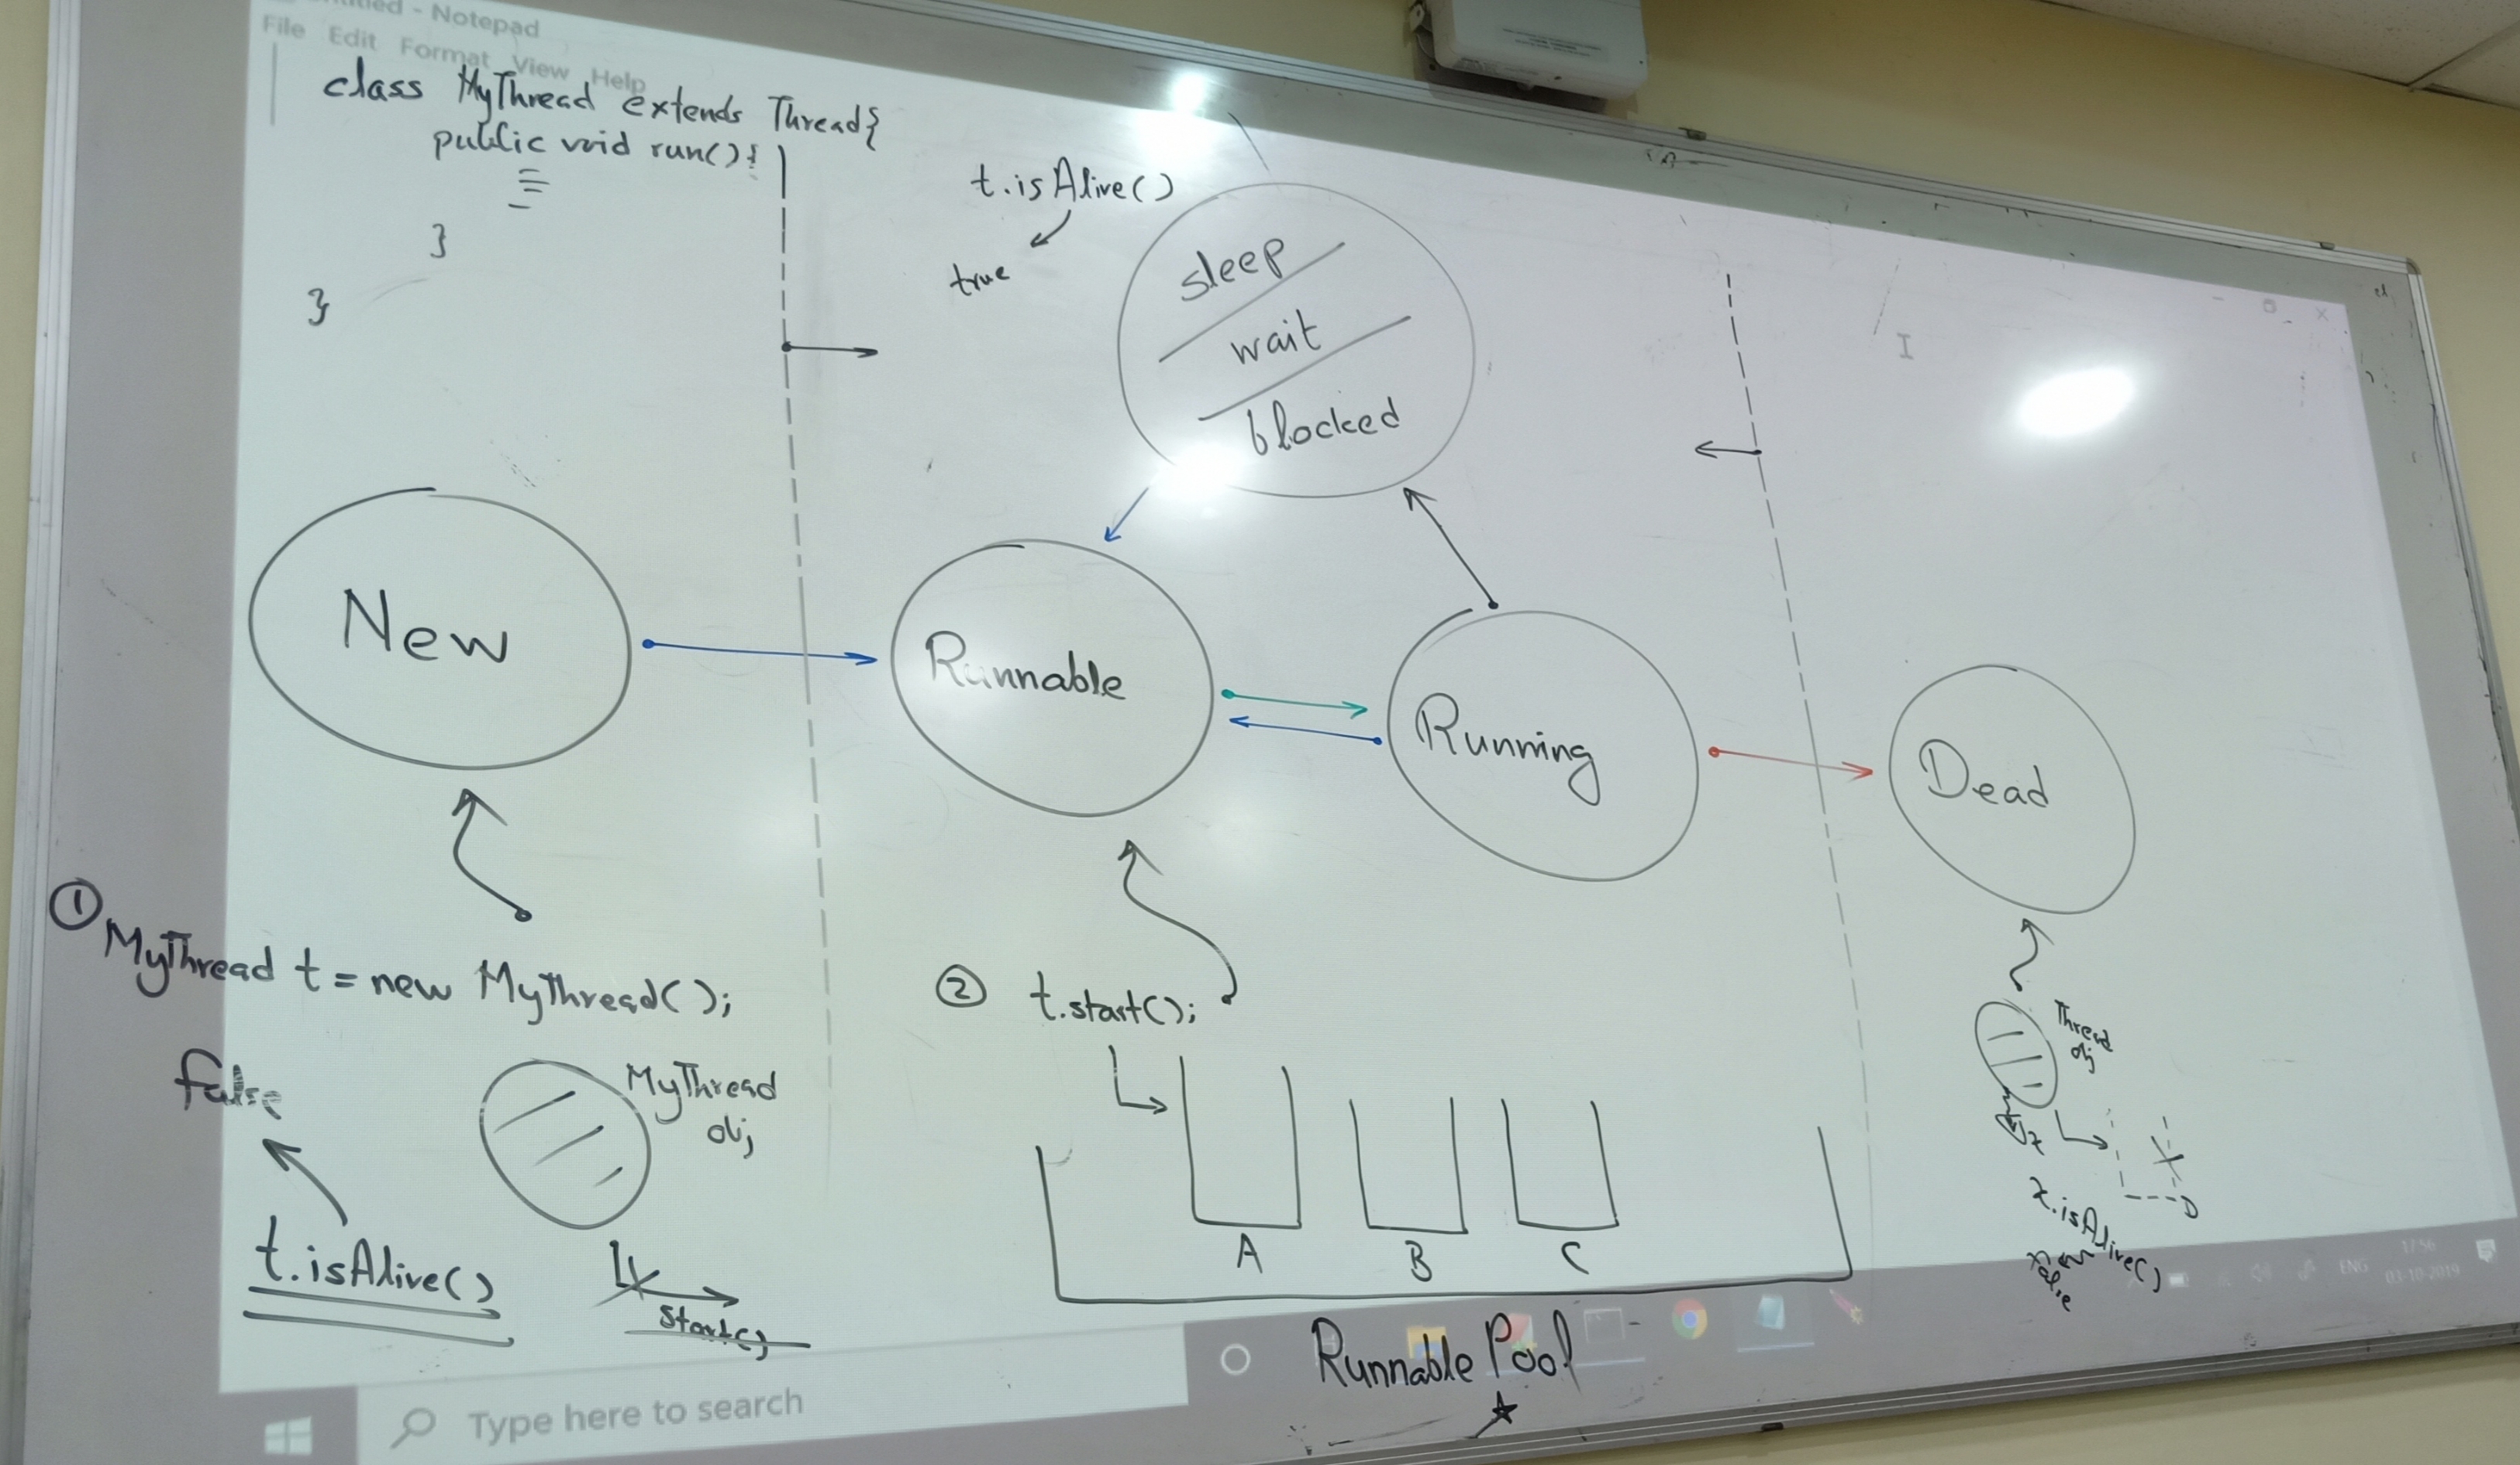 Untitled - Notepad
File Edit Format View Help
class MyThread extends Thread{
public void run(){
}
}
t.isAlive()
true
sleep
wait
blocked
New
Runnable
Running
Dead
① MyThread t = new MyThread();
② t.start();
false
MyThread
obj
t.isAlive()
start()
A B C
Runnable Pool
Thread
obj
t.isAlive()
Type here to search
ENG
17:56
03-10-2019